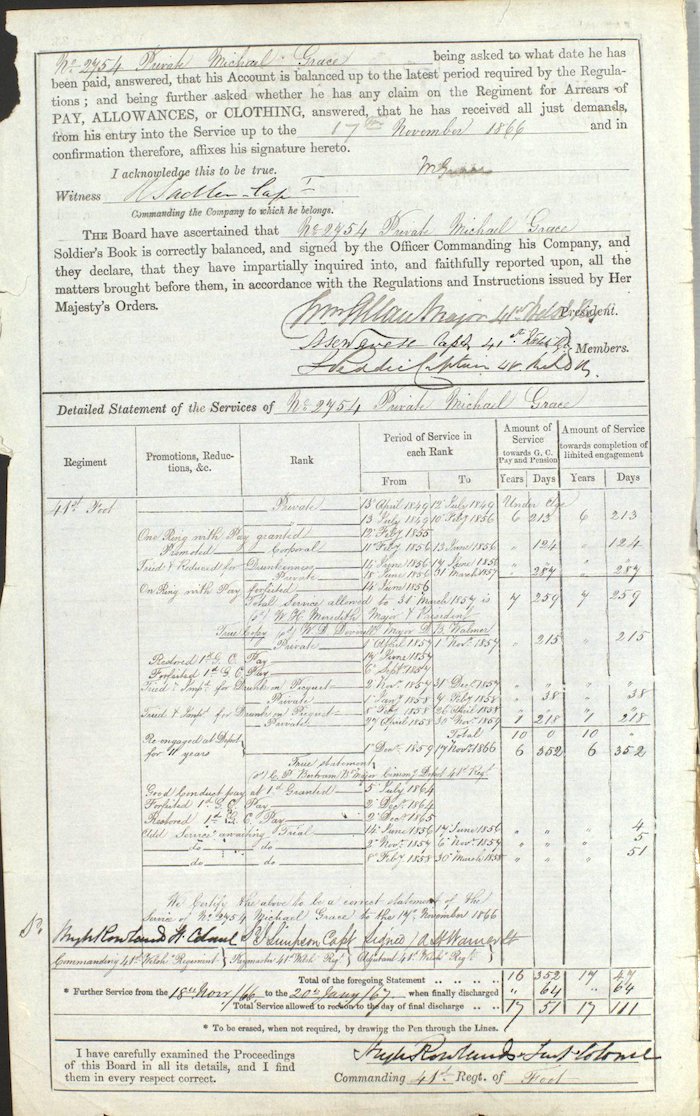 No 2754 Private Michael Grace being asked to what date he has
been paid, answered, that his Account is balanced up to the latest period required by the Regula-
tions; and being further asked whether he has any claim on the Regiment for Arrears of
PAY, ALLOWANCES, or CLOTHING, answered, that he has received all just demands,
from his entry into the Service up to the 17th November 1866 and in
confirmation therefore, affixes his signature hereto.
I acknowledge this to be true. M Grace
Witness H Sadler Capt
Commanding the Company to which he belongs.
THE BOARD have ascertained that No 2754 Private Michael Grace
Soldier's Book is correctly balanced, and signed by the Officer Commanding his Company, and
they declare, that they have impartially inquired into, and faithfully reported upon, all the
matters brought before them, in accordance with the Regulations and Instructions issued by Her
Majesty's Orders.
Wm Allan Major 41st President.
Capt 41st
Members.
Captain 41
Detailed Statement of the Services of No 2754 Private Michael Grace
Regiment Promotions, Reduc-tions, &c. Rank Period of Service in each Rank Amount of Service towards G. C. Pay and Pension Amount of Service towards completion of limited engagement
From To Years Days Years Days
41st Foot Private 13 April 1849 12 July 1849 Under Age
13 July 1849 10 Feby 1856 6 213 6 213
One Ring with Pay granted 12 Feby 1855
Promoted Corporal 11 Feby 1856 13 June 1856 " 124 " 124
Tried & Reduced for Drunkenness 14 June 1856 17 June 1856 " " " "
Private 18 June 1856 31 March 1857 " 287 " 287
On Ring with Pay forfeited 14 June 1856
Total Service allowed to 31 March 1857 is 7 259 7 259
(sd) W. H. Meredith Major & President
True Copy (sd) W D Major D. B. Walmer
Private 1 April 1857 1 Novr 1857 " 215 " 215
Restored 1st G. C. Pay 17 June 1857
Forfeited 1st G. C. Pay 6 Septr 1857
Tried & Impd for Drunk on Picquet 2 Novr 1857 31 Decr 1857 " " " "
Private 1 Jany 1858 7 Feby 1858 " 38 " 38
Tried & Impd for Drunk on Picquet 8 Feby 1858 26 April 1858 " " " "
Private 27 April 1858 30 Novr 1859 1 218 1 218
Total 10 " 10 "
Re engaged at Depot for 11 years 1 Decr 1859 17 Novr 1866 6 352 6 352
True statement
(sd) C. P. Bertram Major Depot 41st Regt
Good Conduct pay at 1d Granted 5 July 1864
Forfeited 1st G. C. Pay 2 Decr 1864
Restored 1st G. C. Pay 2 Decr 1865
Add Service awaiting Trial 14 June 1856 17 June 1856 " 4
do do 2 Novr 1857 6 Novr 1857 " " " 5
do do 8 Feby 1858 30 March 1858 " " " 51
We Certify the above to be a correct statement of the
Service of No 2754 Michael Grace to the 17th November 1866
Hugh Rowlands Lt Colonel Simpson Capt Signed
Commanding 41st Welch Regiment Paymaster 41st Welch Regt Adjutant 41st Welch Regt
Total of the foregoing Statement .. .. .. .. 16 352 17 47
* Further Service from the 18th Novr /66 to the 20th Jany /67 when finally discharged " 64 " 64
Total Service allowed to reckon to the day of final discharge .. .. 17 51 17 111
* To be erased, when not required, by drawing the Pen through the Lines.
I have carefully examined the Proceedings
of this Board in all its details, and I find
them in every respect correct.
Hugh Rowlands Lieut Colonel
Commanding 41st Regt. of Foot